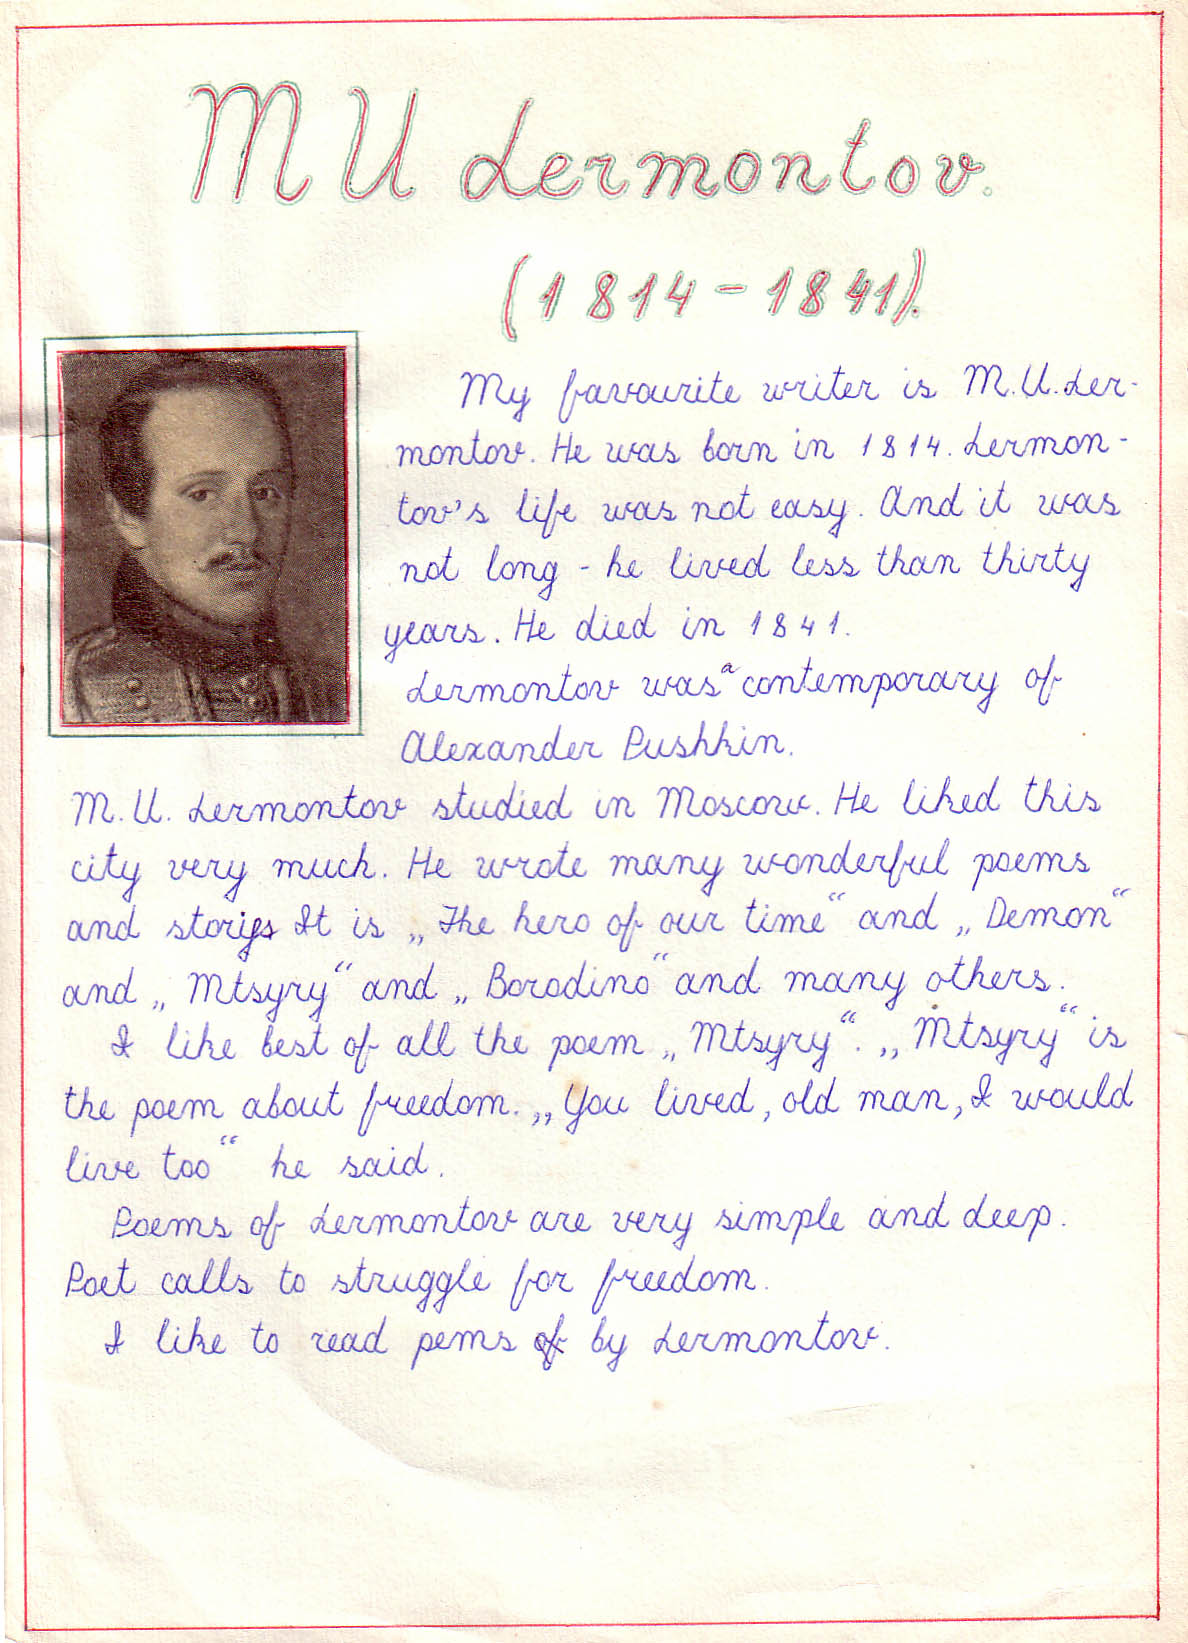 M U Lermontov.
(1814-1841).
My favourite writer is M.U.Ler-
montov. He was born in 1814. Lermon-
tov's life was not easy. And it was
not long - he lived less than thirty
years. He died in 1841.
Lermontov was a contemporary of
Alexander Pushkin.
M.U. Lermontov studied in Moscow. He liked this
city very much. He wrote many wonderful poems
and storys It is „The hero of our time“ and „Demon“
and „Mtsyry“ and „Borodino“ and many others.
I like best of all the poem „Mtsyry“. „Mtsyry“ is
the poem about freedom. „You lived, old man, I would
live too“ he said.
Poems of Lermontov are very simple and deep.
Poet calls to struggle for freedom.
I like to read pems of by Lermontov.